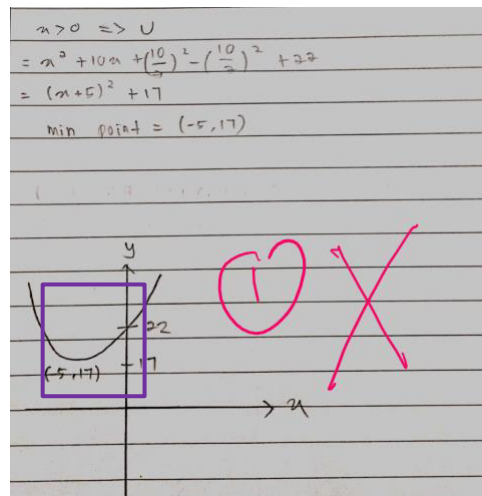 x>0 => U
= x² + 10x + (10/2)² - (10/2)² + 22
= (x+5)² + 17
min point = (-5, 17)
y
1
22
17
(-5, 17)
x